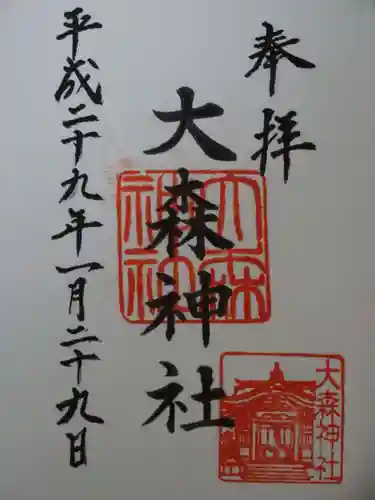 奉拝
大森神社
平成二十九年一月二十九日
大森神社
大森神社